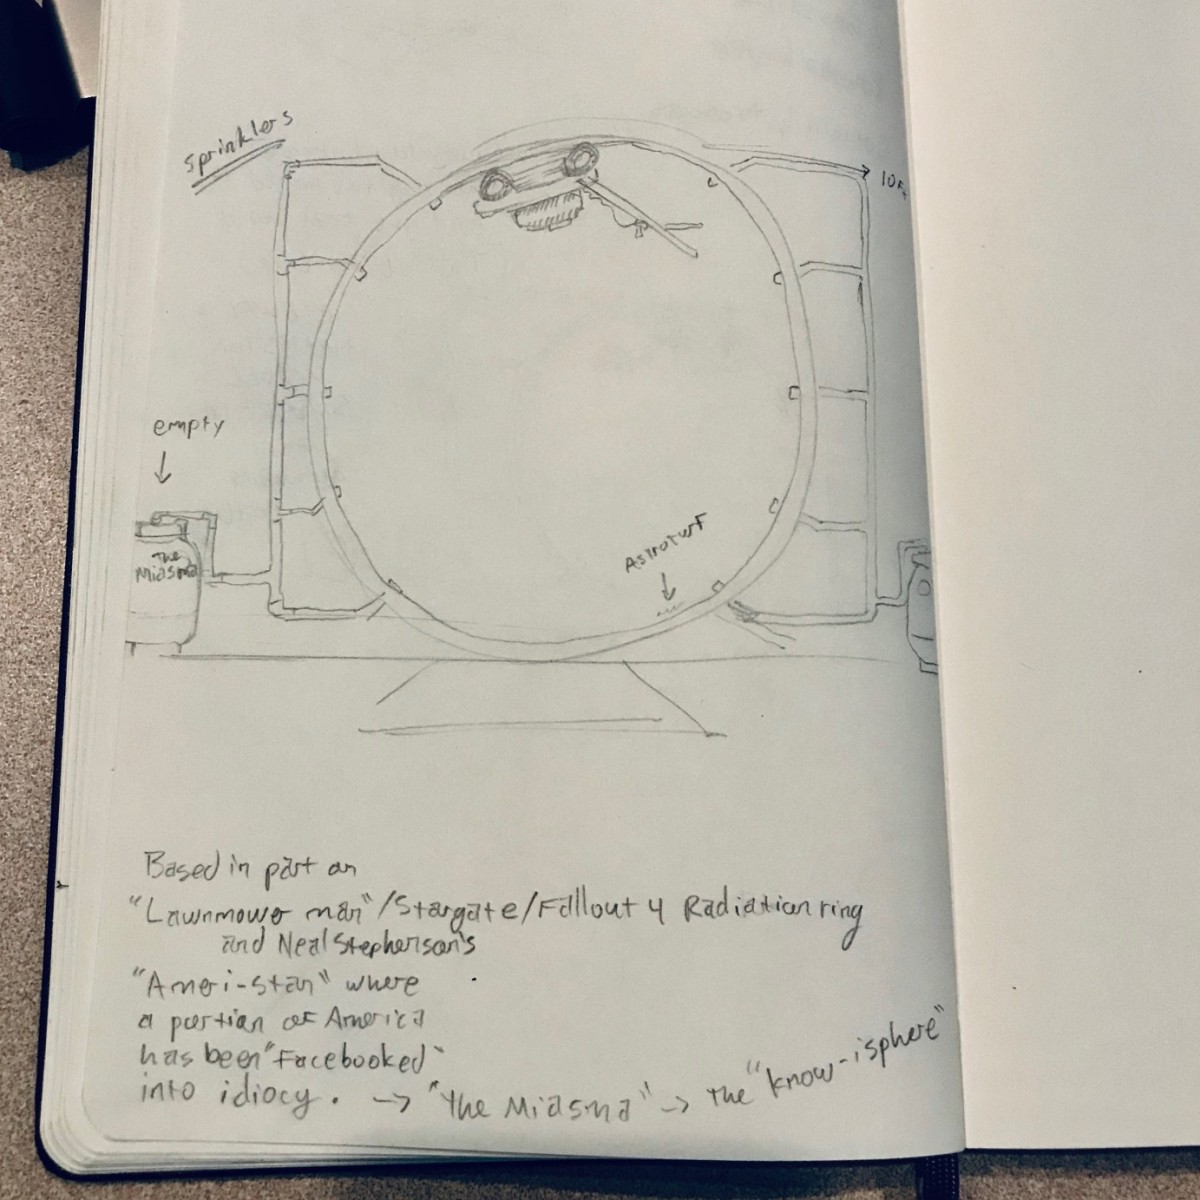 Sprinklers
10Ft
empty
The
Miasma
Astroturf
Based in part on
"Lawnmower man"/Stargate/Fallout 4 Radiation ring
and Neal Stephenson's
"Ameri-stan" where
a portion of America
has been "Facebooked"
into idiocy. → "The Miasma" → the "know-isphere"